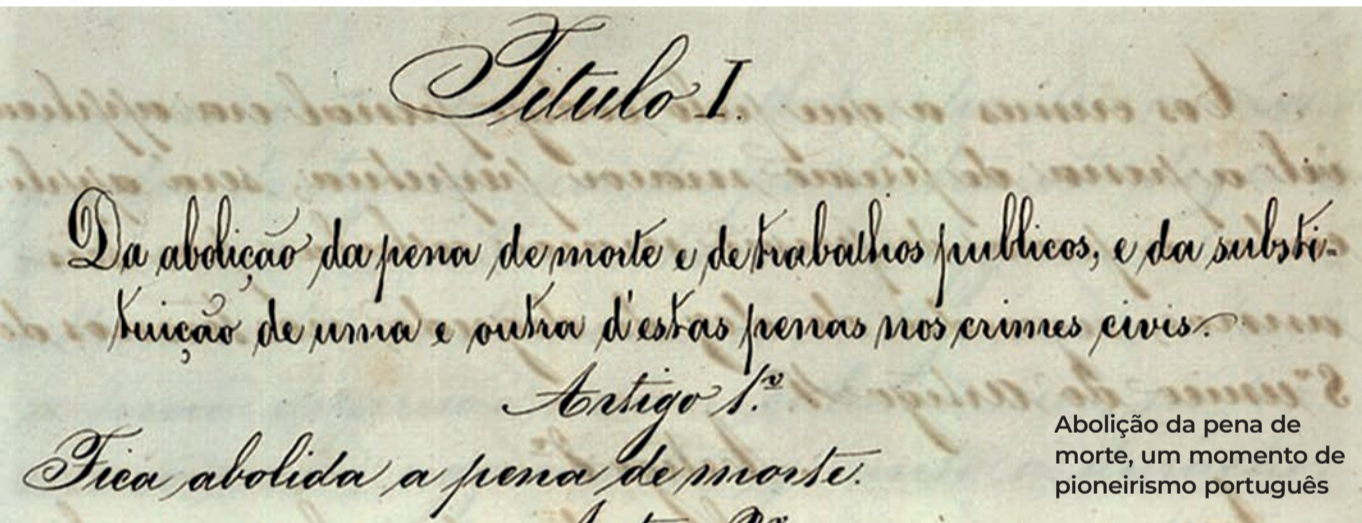 Titulo I.
Da abolição da pena de morte e de trabalhos publicos, e da substi-
tuição de uma e outra d'estas penas nos crimes civis.
Artigo 1.º
Fica abolida a pena de morte.
Abolição da pena de
morte, um momento de
pioneirismo português